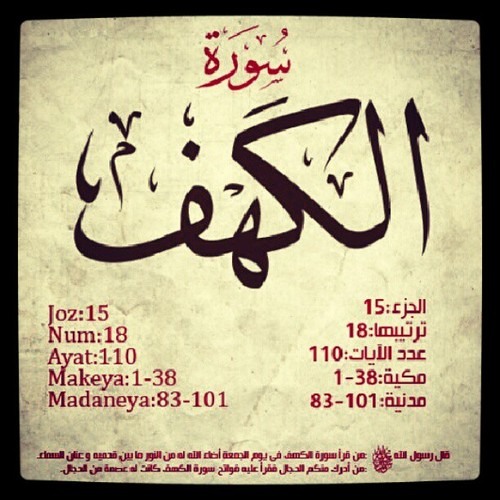 سُورَة
الكهف
Joz:15
Num:18
Ayat:110
Makeya:1-38
Madaneya:83-101
الجزء:15
ترتيبها:18
عدد الآيات:110
مكية:38-1
مدنية:101-83
قال رسول الله ﷺ :من قرأ سورة الكهف في يوم الجمعة أضاء الله له من النور ما بين قدميه و عنان السماء.
:من أدرك منكم الدجال فقرأ عليه فواتح سورة الكهف كانت له عصمة من الدجال.